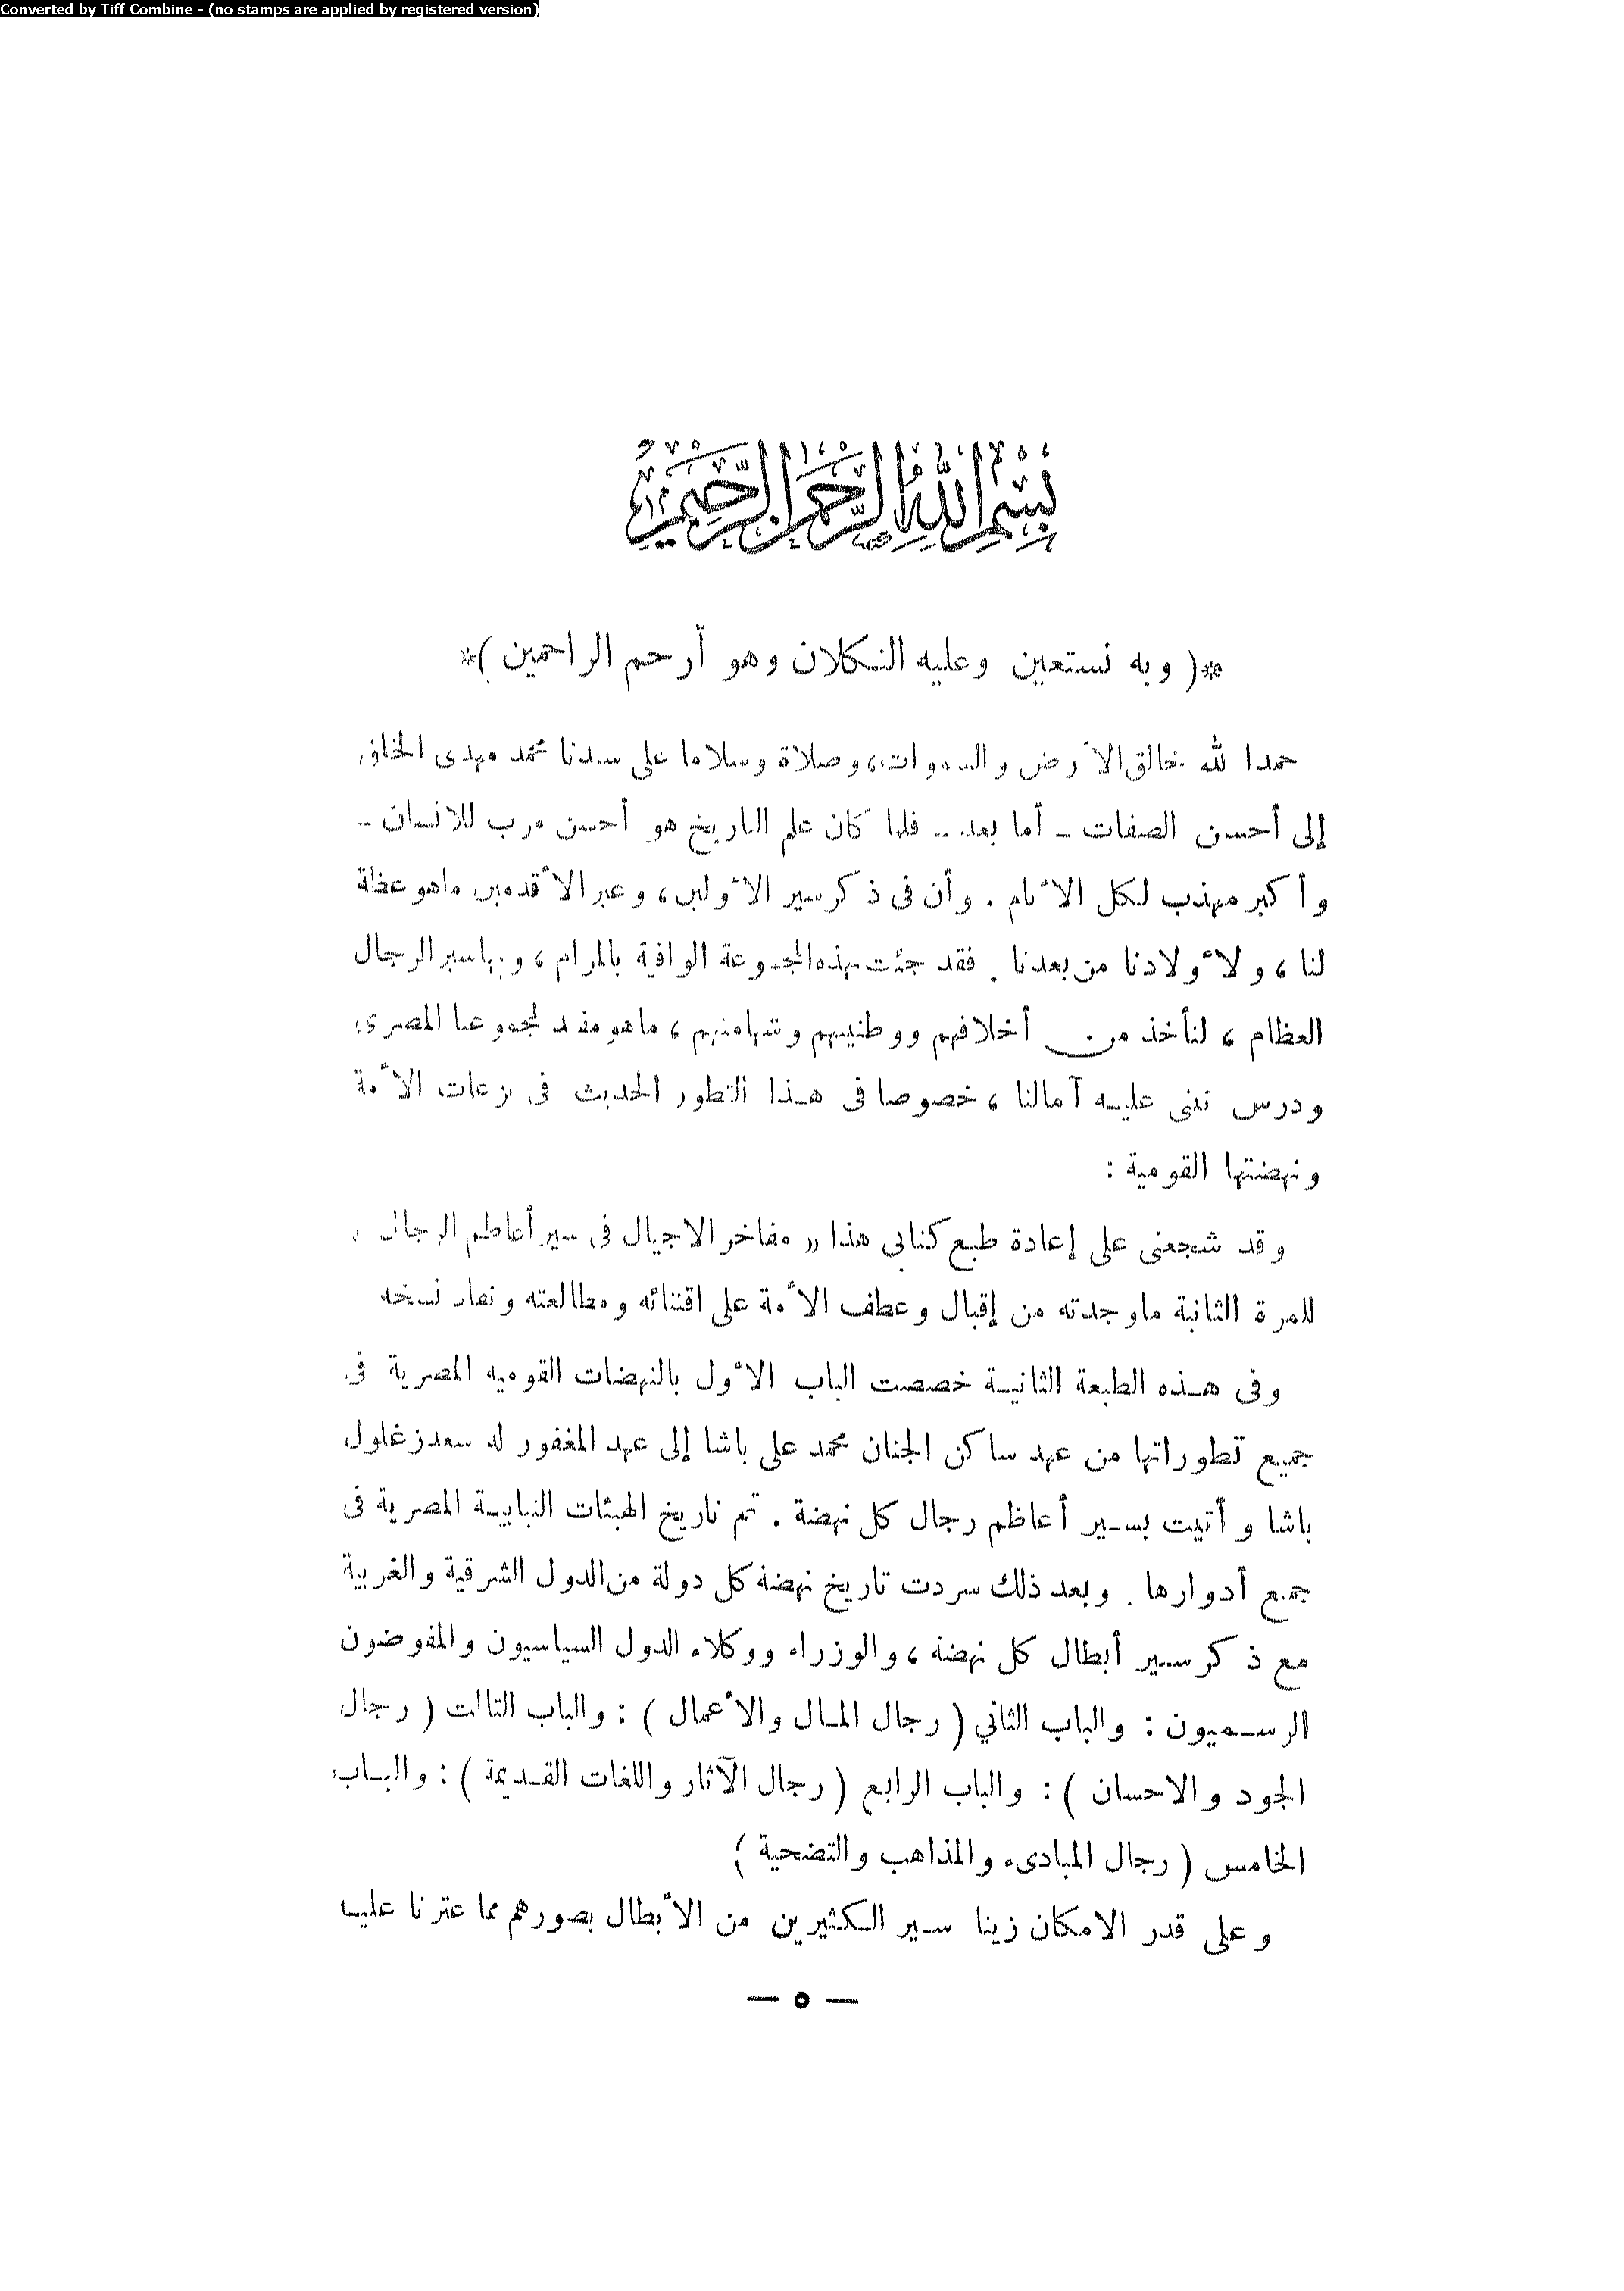 Converted by Tiff Combine - (no stamps are applied by registered version)
بسم الله الرحمن الرحيم
*( وبه نستعين وعليه التكلان وهو أرحم الراحمين )*
حمدا لله خالق الأرض والسموات، وصلاة وسلاما على سيدنا محمد مهدى الخلق
إلى أحسن الصفات ــ أما بعد .. فلما كان علم التاريخ هو أحسن مرب للانسان ..
وأكبر مهذب لكل الأنام . وأن فى ذكر سير الأولين، وعبر الأقدمين ماهو عظة
لنا، ولأولادنا من بعدنا . فقد جئت بهذه المجموعة الوافية بالمرام، وبها سير الرجال
العظام، لنأخذ من أخلاقهم ووطنيتهم وشهامتهم، ماهو مفيد لمجموعنا المصرى
ودرس نبنى عليه آمالنا، خصوصا فى هذا التطور الحديث فى نزعات الأمة
ونهضتها القومية :
وقد شجعنى على إعادة طبع كتابى هذا « مفاخر الاجيال فى سير أعاظم الرجال »
للمرة الثانية ماوجدته من إقبال وعطف الأمة على اقتنائه ومطالعته ونفاد نسخه
وفى هذه الطبعة الثانية خصصت الباب الأول بالنهضات القوميه المصرية فى
جميع تطوراتها من عهد ساكن الجنان محمد على باشا إلى عهد المغفور له سعد زغلول
باشا وأتيت بسير أعاظم رجال كل نهضة . ثم تاريخ الهيئات النيابية المصرية فى
جميع أدوارها . وبعد ذلك سردت تاريخ نهضة كل دولة من الدول الشرقية والغربية
مع ذكر سير أبطال كل نهضة، والوزراء ووكلاء الدول السياسيون والمفوضون
الرسميون : والباب الثاني ( رجال المال والأعمال ) : والباب الثالث ( رجال
الجود والاحسان ) : والباب الرابع ( رجال الآثار واللغات القديمة ) : والباب
الخامس ( رجال المبادىء والمذاهب والتضحية )
وعلى قدر الامكان زينا سير الكثيرين من الأبطال بصورهم مما عثرنا عليه
— ٥ —